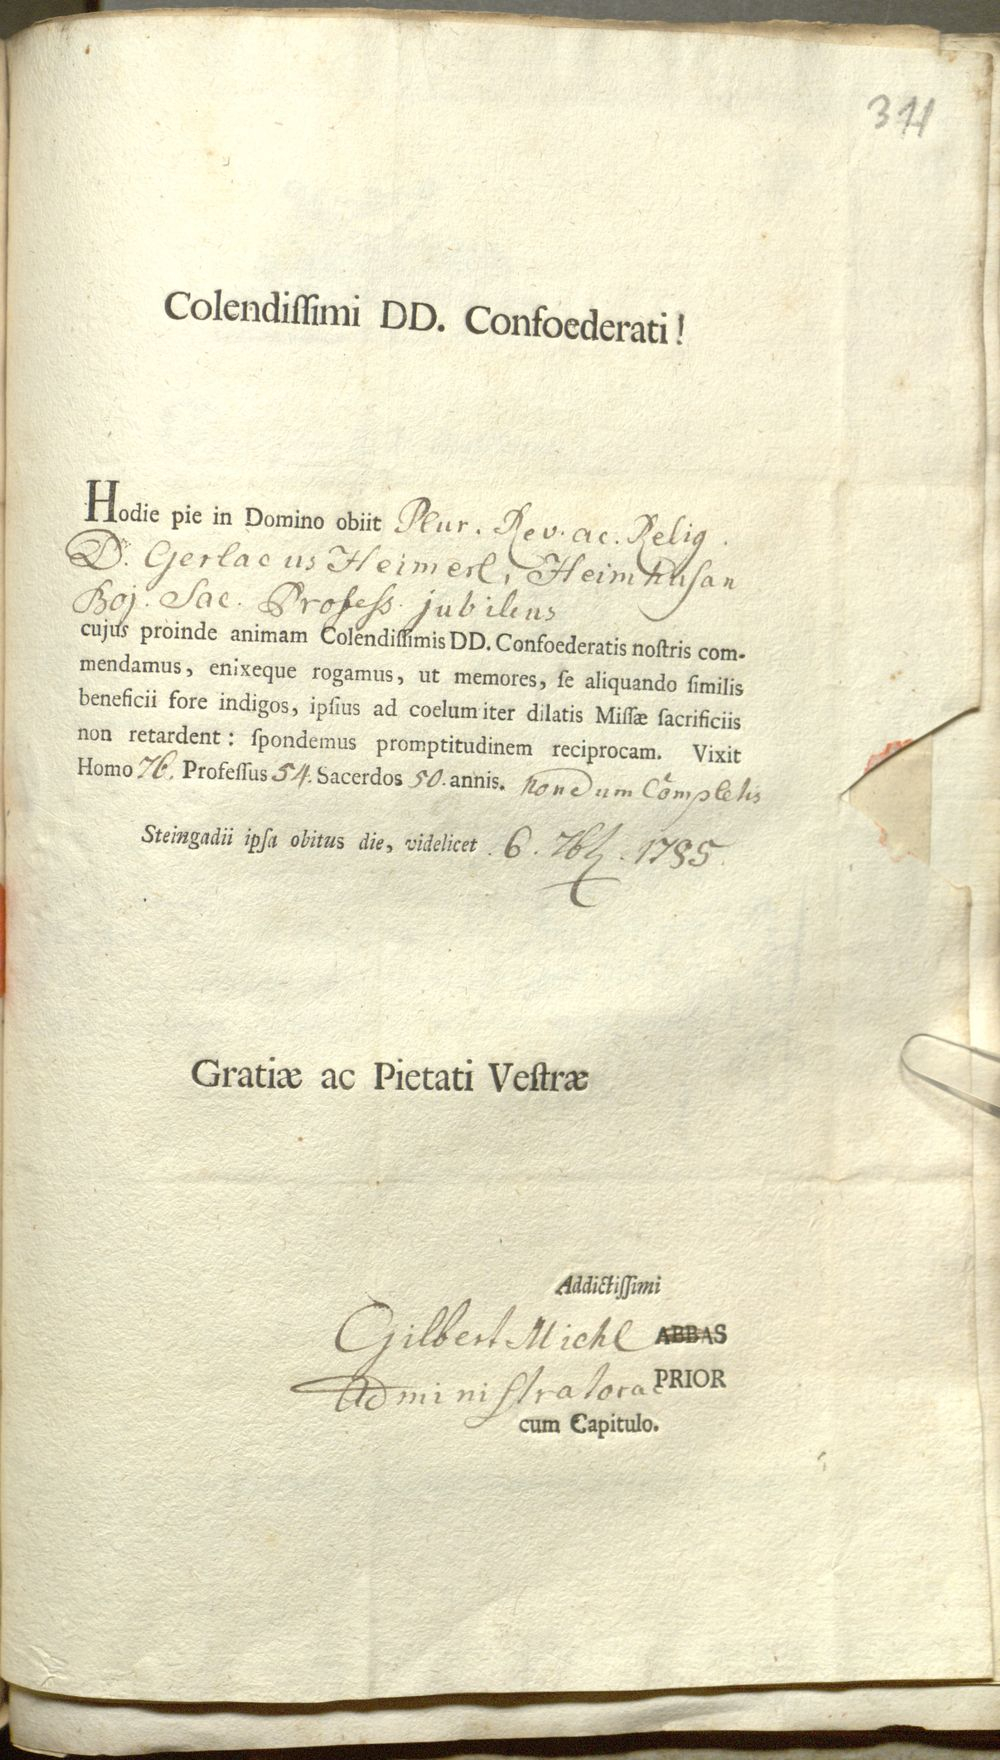 311
Colendiſſimi DD. Confoederati!
Hodie pie in Domino obiit Plur. Rev. ac. Relig.
D. Gerlacus Heimerl, Heimhusan
Boj. Sac. Profess. jubilens
cujus proinde animam Colendiſſimis DD. Confoederatis noſtris com-
mendamus, enixeque rogamus, ut memores, ſe aliquando ſimilis
beneficii fore indigos, ipſius ad coelum iter dilatis Miſſæ ſacrificiis
non retardent: ſpondemus promptitudinem reciprocam. Vixit
Homo 76. Profeſſus 54. Sacerdos 50. annis. nondum Completis
Steingadii ipſa obitus die, videlicet 6. 7b 1785.
Gratiæ ac Pietati Veſtræ
Addictiſſimi
Gilbert Michl ABBAS
Administrator ac PRIOR
cum Capitulo.